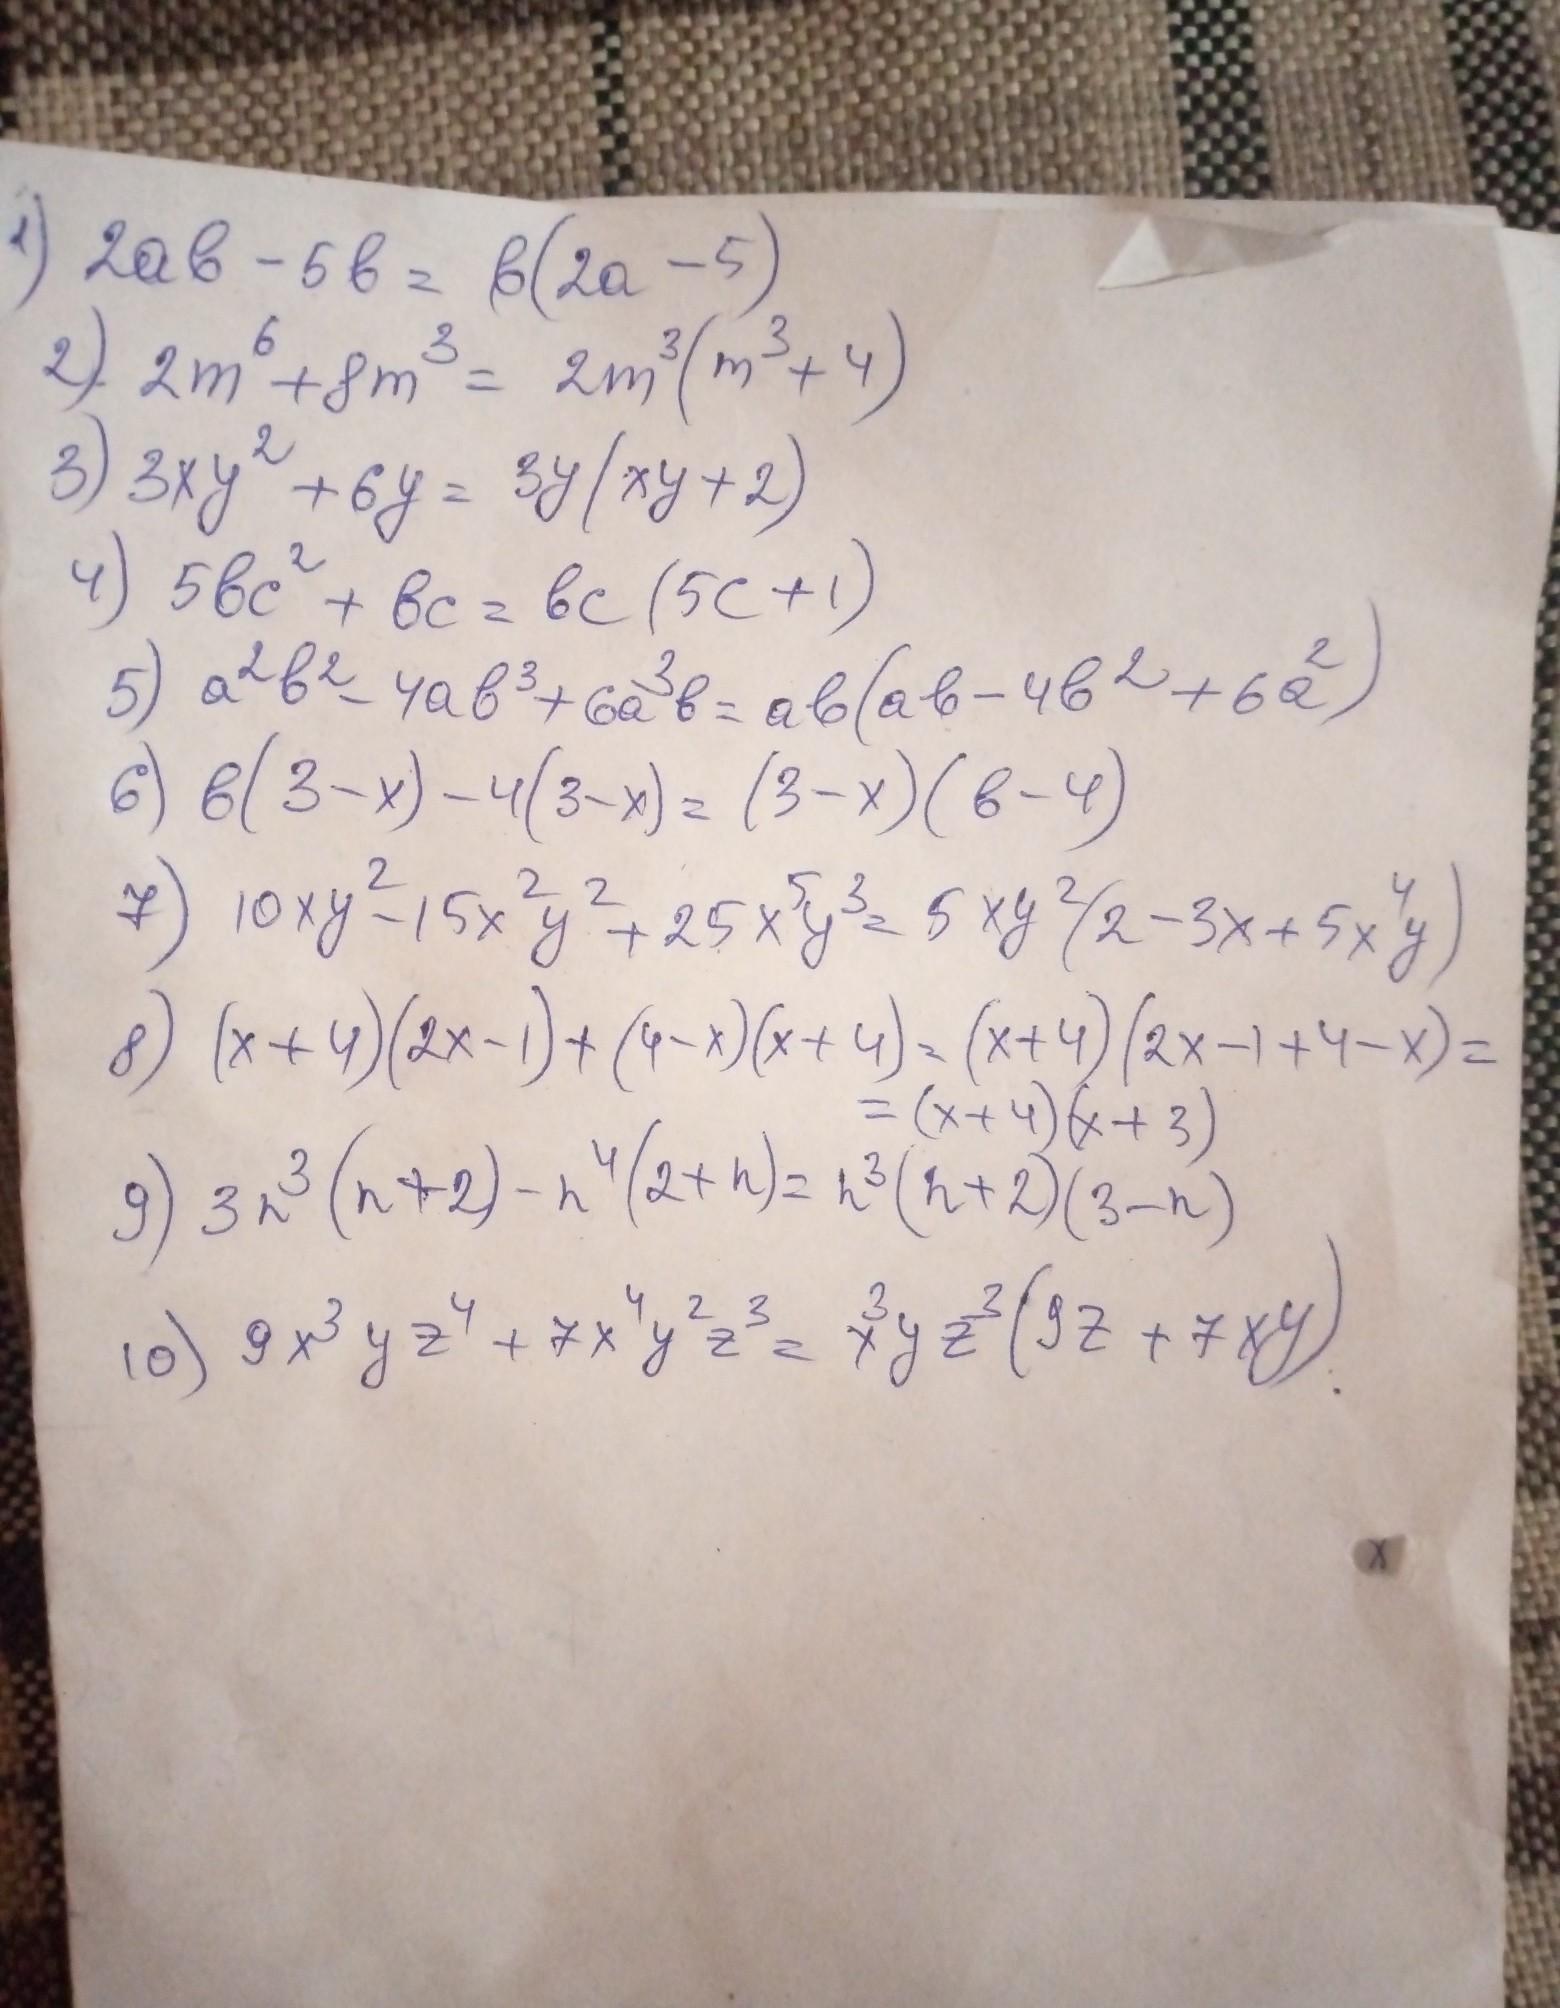 1) 2aв - 5в = в(2a - 5)
2) 2m⁶ + 8m³ = 2m³(m³ + 4)
3) 3xy² + 6y = 3y(xy + 2)
4) 5вc² + вc = вc(5c + 1)
5) a²в² - 4aв³ + 6a³в = aв(aв - 4в² + 6a²)
6) в(3 - x) - 4(3 - x) = (3 - x)(в - 4)
7) 10xy² - 15x²y² + 25x⁵y³ = 5xy²(2 - 3x + 5x⁴y)
8) (x + 4)(2x - 1) + (4 - x)(x + 4) = (x + 4)(2x - 1 + 4 - x) =
= (x + 4)(x + 3)
9) 3n³(n + 2) - n⁴(2 + n) = n³(n + 2)(3 - n)
10) 9x³yz⁴ + 7x⁴y²z³ = x³yz³(9z + 7xy).
x